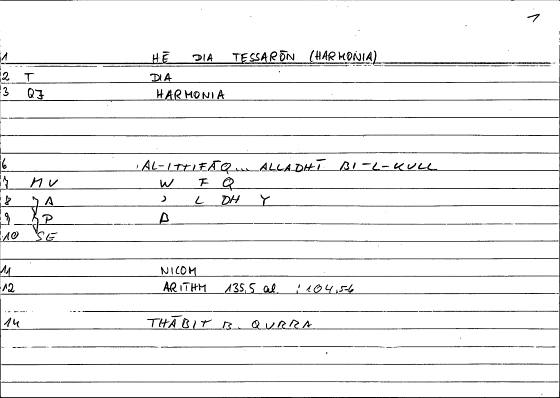 1
1 HĒ DIA TESSARŌN (HARMONIA)
2 T DIA
3 QJ HARMONIA
6 AL-ITTIFĀQ... ALLADHĪ BI-L-KULL
7 MV W F Q
8 A ' L DH Y
9 P D
10 SE
11 NICOM
12 ARITHM 135,5 al. : 104,56
14 THĀBIT B. QURRA